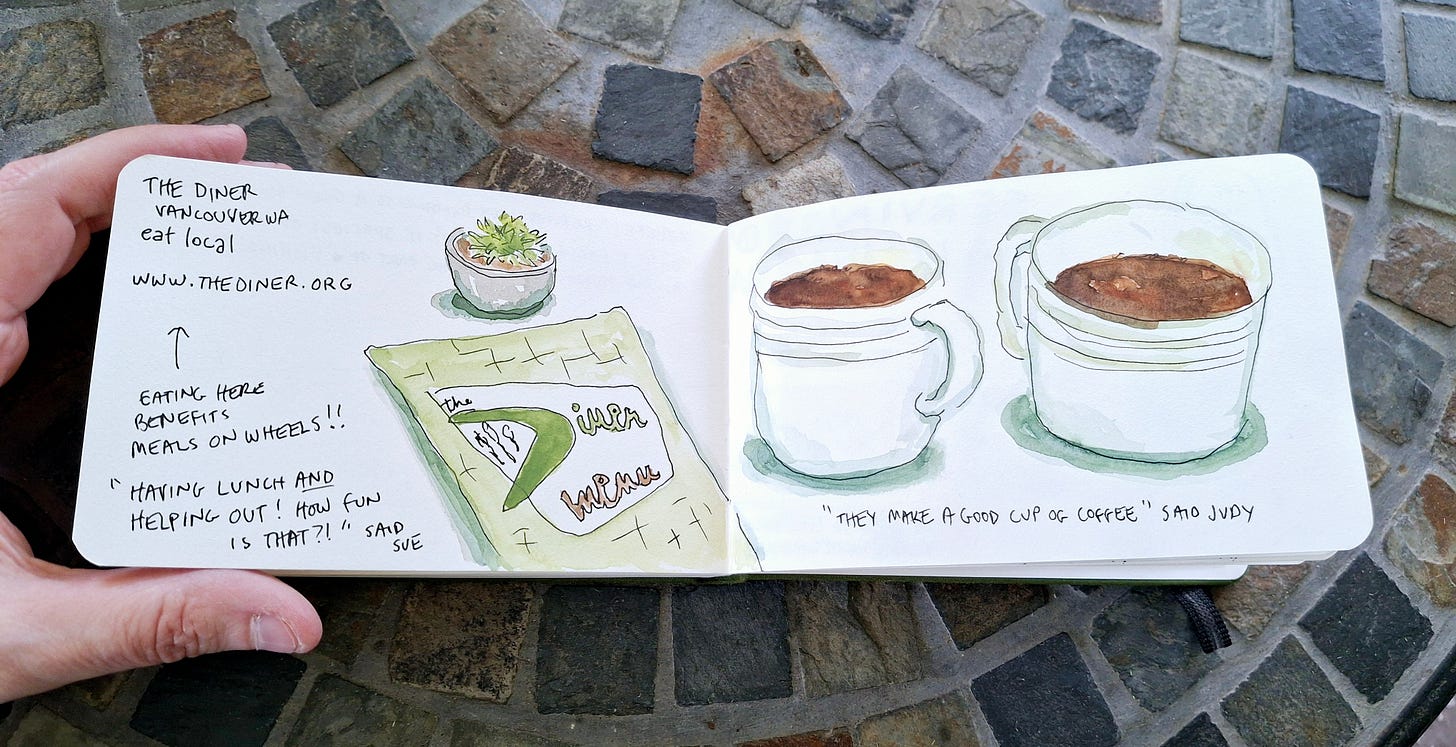 THE DINER
VANCOUVER WA
eat local
WWW.THEDINER.ORG
EATING HERE
BENEFITS
MEALS ON WHEELS!!
"HAVING LUNCH AND
HELPING OUT! HOW FUN
IS THAT?!" SAID
SUE
the
Diner
menu
"THEY MAKE A GOOD CUP OG COFFEE" SAID JUDY